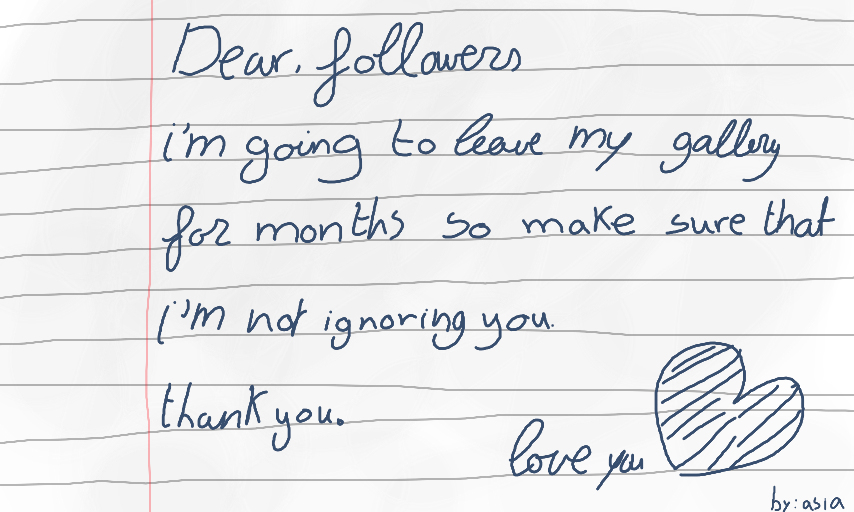 Dear. followers
i'm going to leave my gallery
for months so make sure that
i'm not ignoring you.
thank you.
love you
by: asia